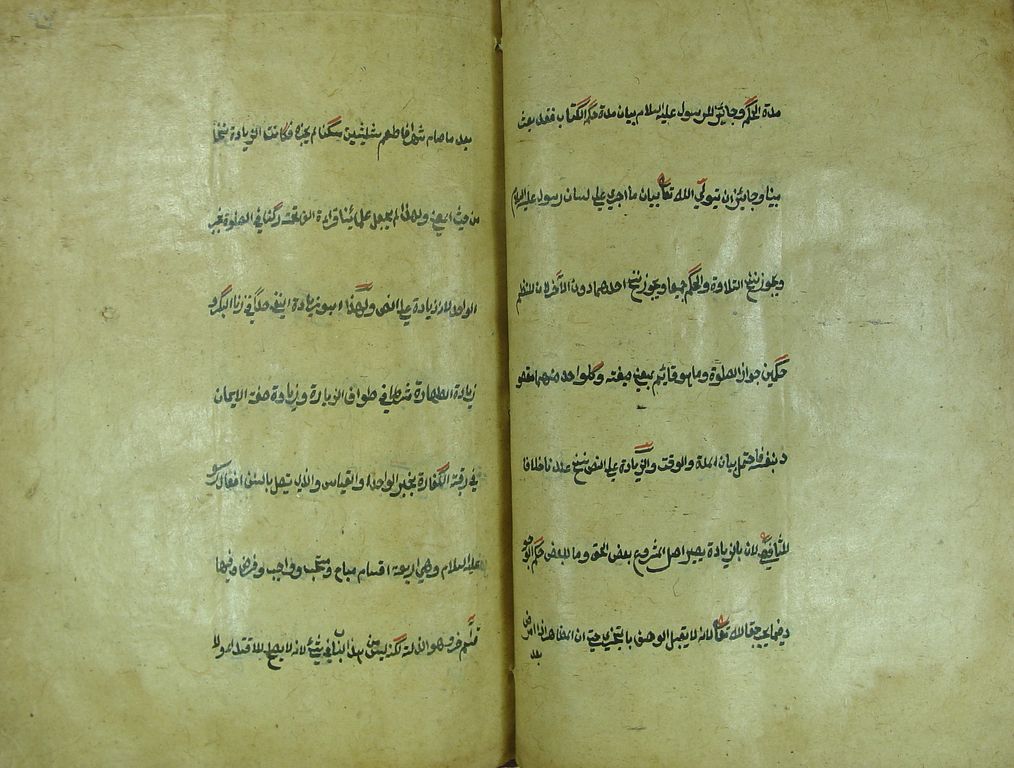 مدة الحكم وجائز للرسول عليه السلام بيان مدة حكم الكتاب فقد بعث
مبينا وجائز ان يتولي الله تعا بيان ما اجري علي لسان رسوله عليه السلام
ويجوز نسخ التلاوة والحكم جميعا ويجوز نسخ احدهما دون الآخر لان للنظم
حكمين جواز الصلوة وما هو قائم بمعني صيغته وكل واحد منهما مقصو
د بنفسه فاحتمل بيان المدة والوقت والزيادة علي النص نسخ عندنا خلافا
للشافعي لان بالزيادة يصير اصل المشروع بعض الحق وما للبعض حكم الوجو
د فيما يجب حقا لله تعا لانه لا يقبل الوصف بالتجزي حتي ان المظاهر اذا مرض
بعد
بعد ما صام شهرا فاطعم ثلثين مسكينا لم يجزه فكانت الزيادة نسخا
من حيث المعني ولهذا لم يجعل علماؤنا قراءة الفاتحة ركنا في الصلوة بخبر
الواحد لانه زيادة علي النص ولهذا ابوا زيادة النفي حدا في زنا البكر و
زيادة الطهارة شرطا في طواف الزيارة وزيادة صفة الايمان
في رقبة الكفارة بخبر الواحد والقياس والذي يتصل بالسنن افعال رسو
عليه السلام وهي اربعة اقسام مباح ومستحب وواجب وفرض وفيها
قسم آخر وهو الزلة لكنه ليس من هذا الباب في شئ لانه لا يصلح للاقتداء ولا